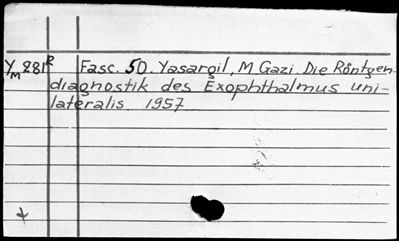 YM 281R Fasc. 50. Yasargil, M Gazi. Die Röntgen-
diagnostik des Exophthalmus uni-
lateralis. 1957